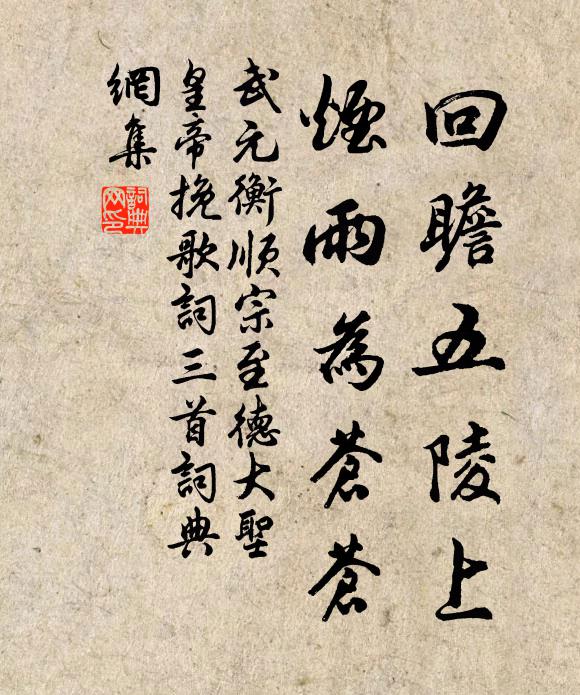 回瞻五陵上
煙雨為蒼蒼
武元衡順宗至德大聖
皇帝挽歌詞三首詞典
網集
詞典
网印